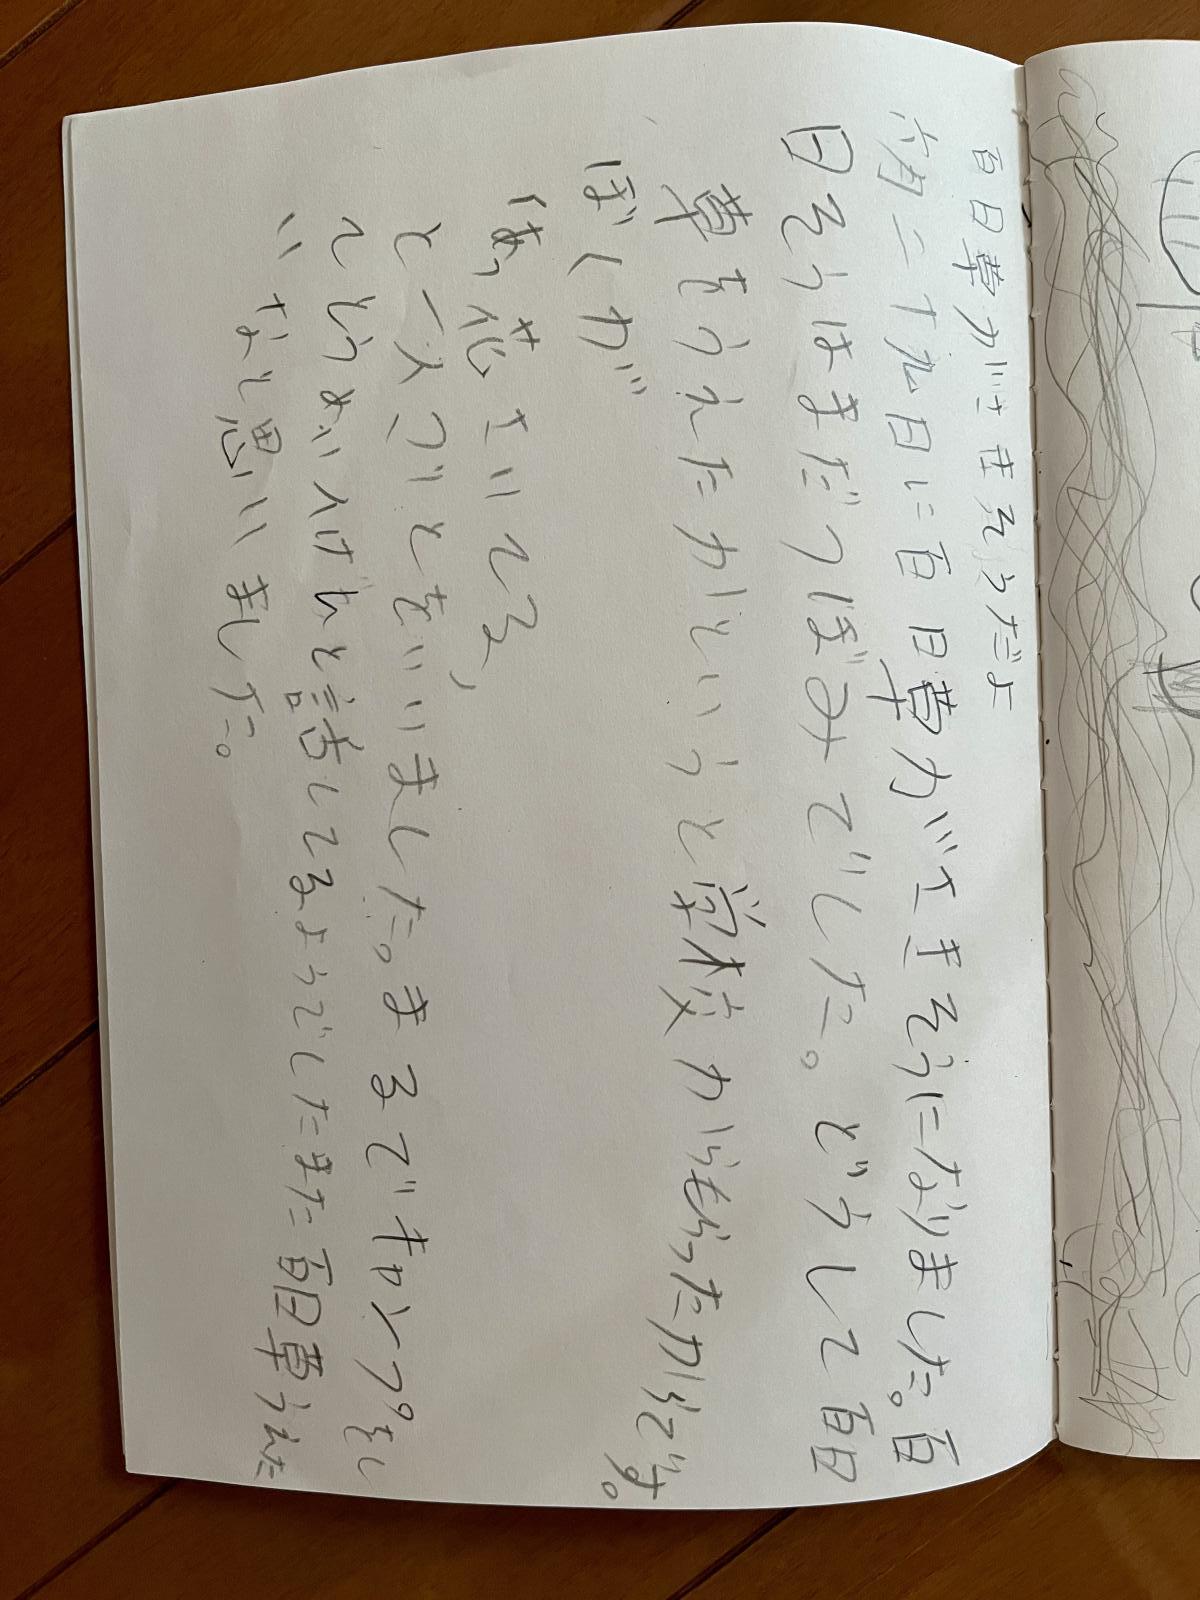 百日草がさきそうだよ
六月二十九日に百日草がさきそうになりました。百
日そうはまだつぼみでした。どうして百日
草をうえたかというと学校からもらったからです。
ぼくが
「あっ花さいてる」
と一人ごとをいいました。まるでキャンプをし
てとちゅうけれと話してるようでしたまた百日草うえた
いなと思いました。